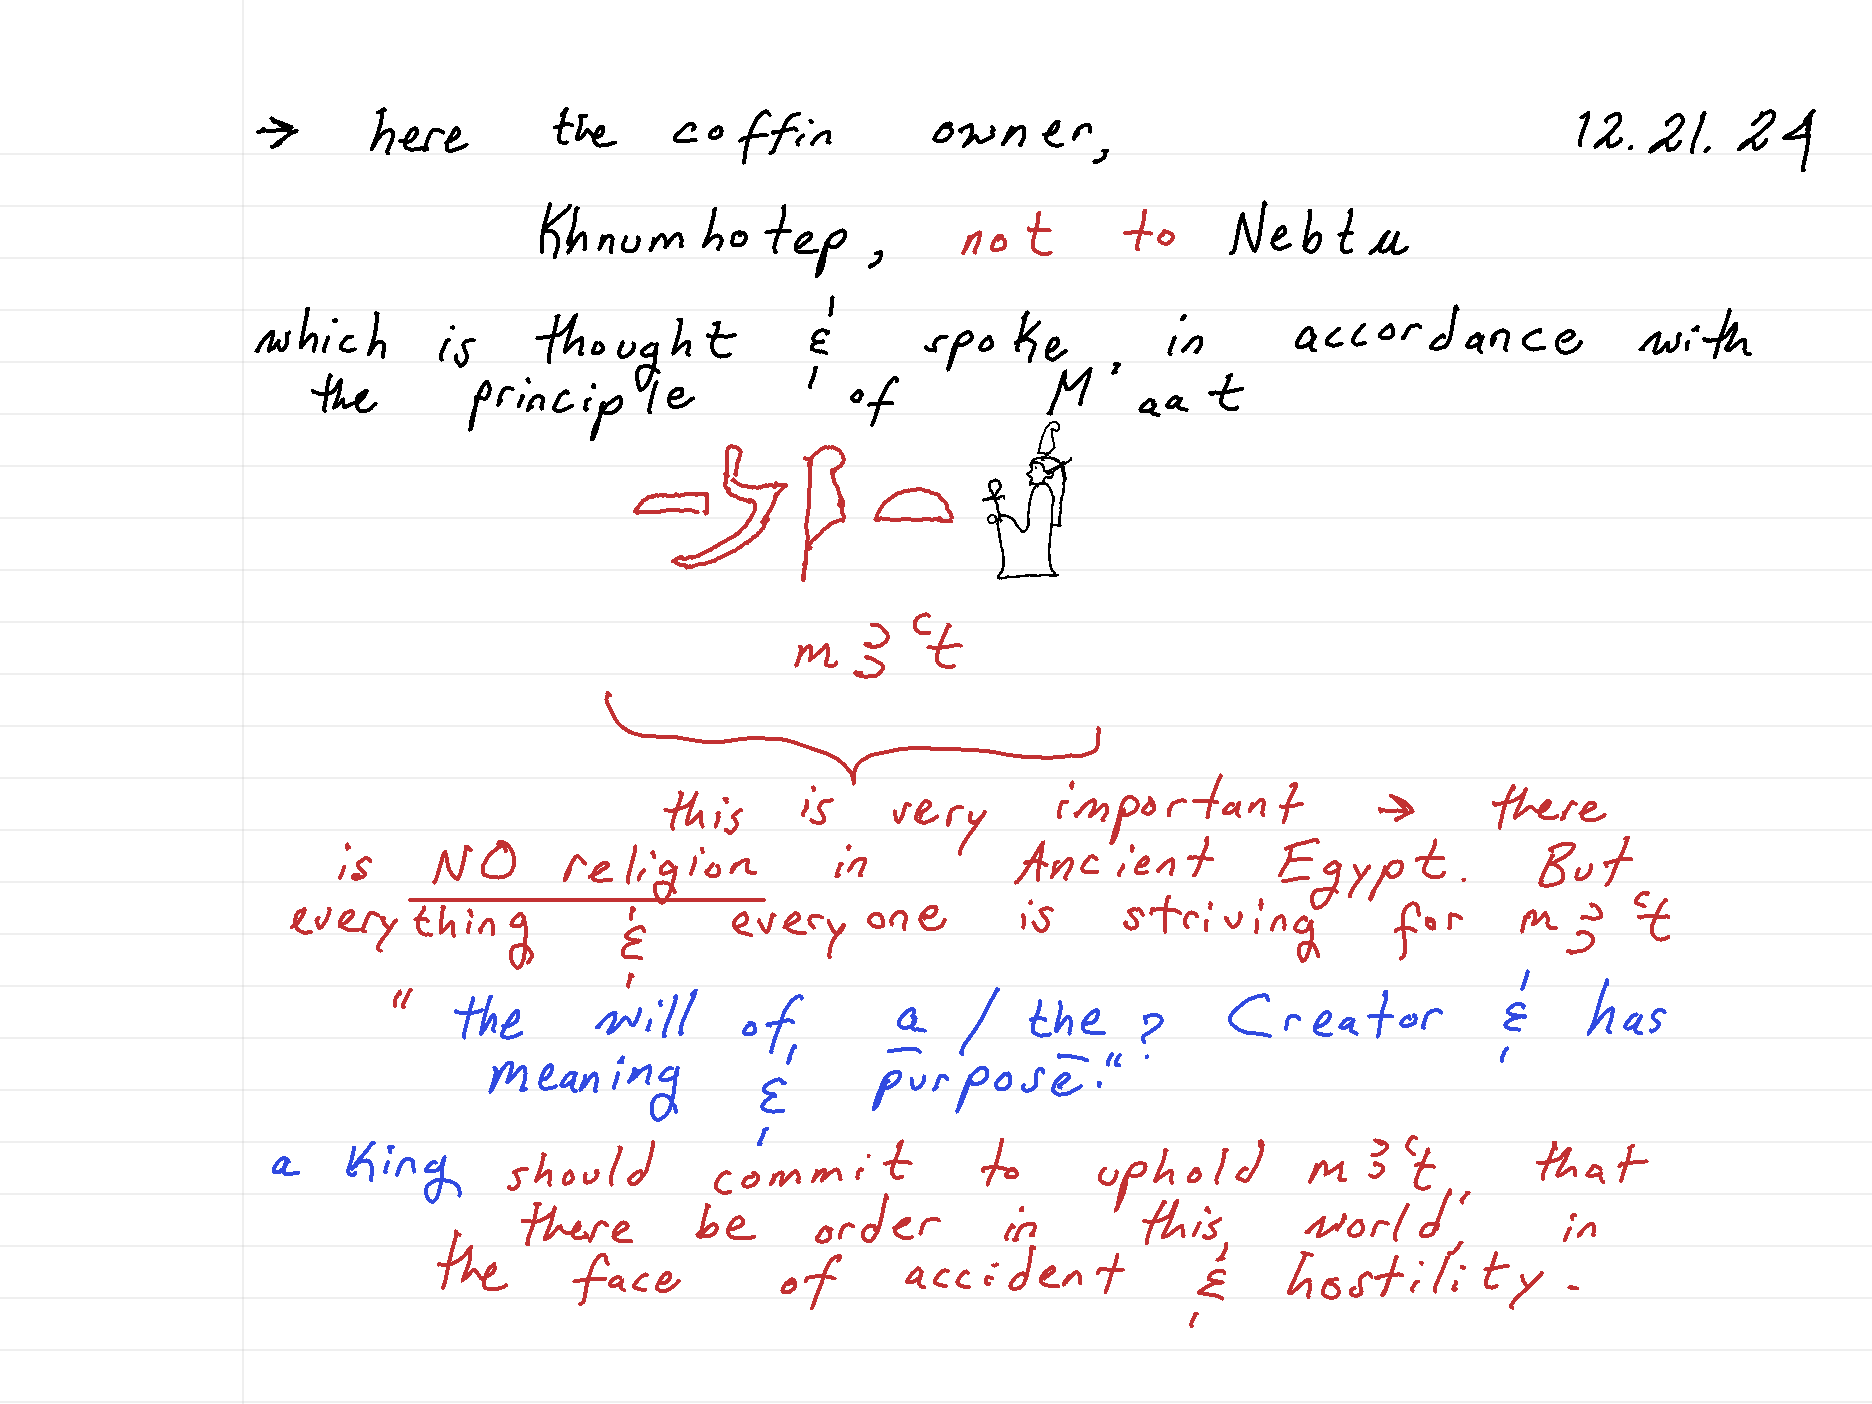 → here the coffin owner, 12.21.24
Khnumhotep, not to Nebtu
which is thought & spoke, in accordance with
the principle of M'aat
m3ꜥt
this is very important → there
is NO religion in Ancient Egypt. But
everything & everyone is striving for m3ꜥt
"the will of a / the? Creator & has
meaning & purpose."
a King should commit to uphold m3ꜥt, that
there be order in this world, in
the face of accident & hostility.